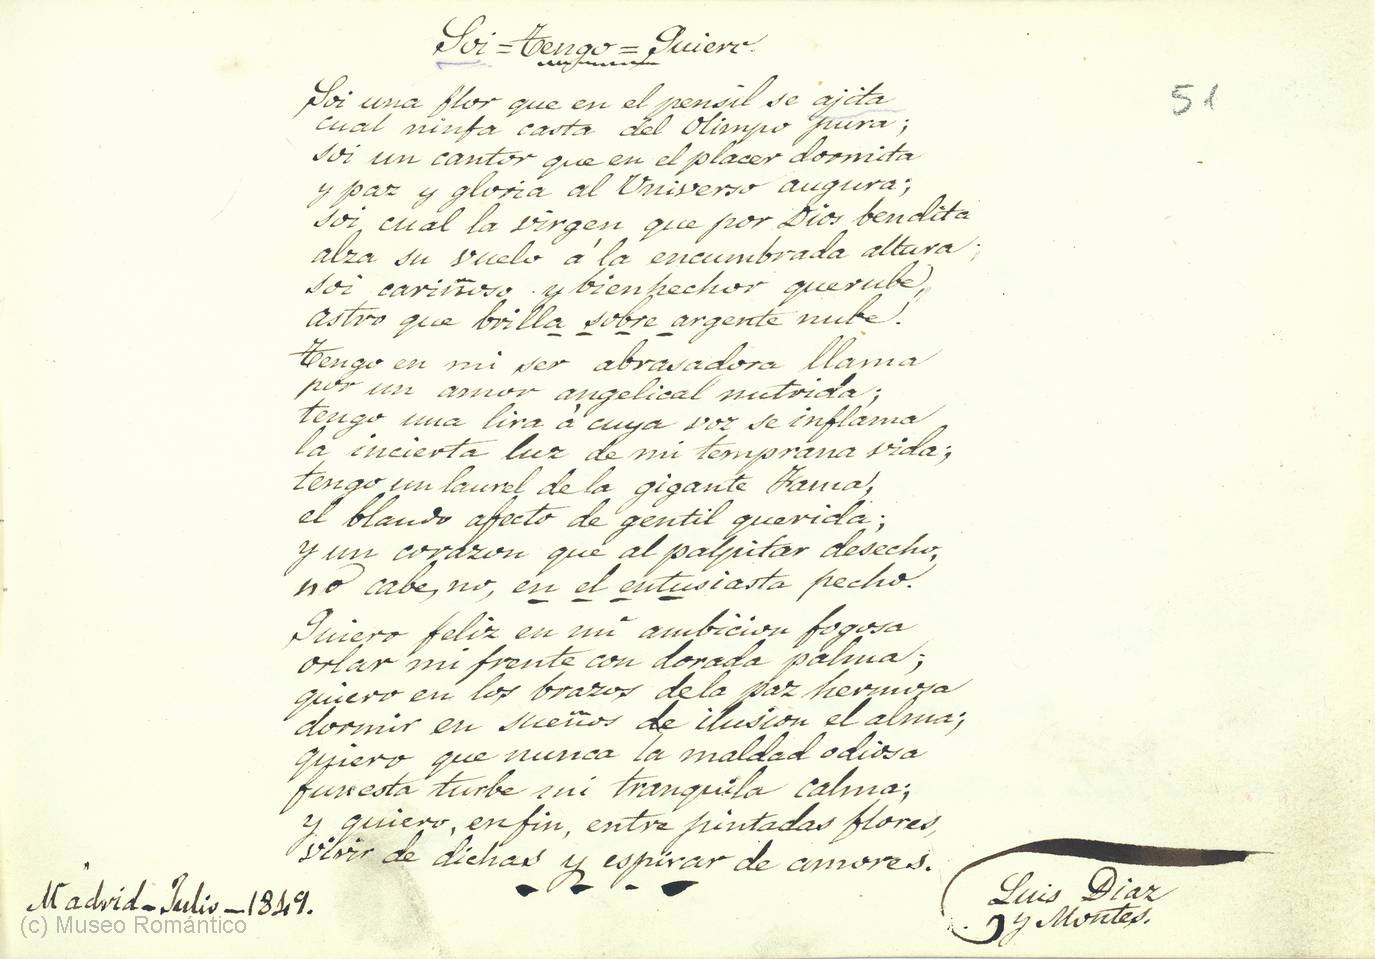 Soi = Tengo = Quiero.
51
Soi una flor que en el pensil se ajita
cual ninfa casta del Olimpo pura;
soi un cantor que en el placer dormita
y paz y gloria al Universo augura;
soi cual la virgen que por Dios bendita
alza su vuelo á la encumbrada altura;
soi cariñoso y bienhechor querube,
astro que brilla sobre argente nube.
Tengo en mi ser abrasadora llama
por un amor angelical nutrida;
tengo una lira á cuya voz se inflama
la incierta luz de mi temprana vida;
tengo un laurel de la gigante Fama,
el blando afecto de gentil querida;
y un corazon que al palpitar desecho,
no cabe, no, en el entusiasta pecho.
Quiero feliz en mi ambicion fogosa
orlar mi frente con dorada palma;
quiero en los brazos de la paz hermosa
dormir en sueños de ilusion el alma;
quiero que nunca la maldad odiosa
funesta turbe mi tranquila calma;
y quiero, en fin, entre pintadas flores,
vivir de dichas y espirar de amores.
Madrid - Julio - 1849.
Luis Diaz
y Montes.
(c) Museo Romántico